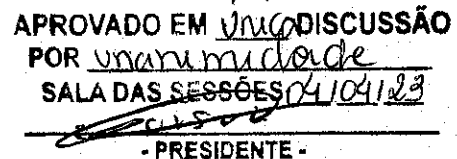 APROVADO EM única DISCUSSÃO
POR unanimidade
SALA DAS SESSÕES 04/04/23
- PRESIDENTE -